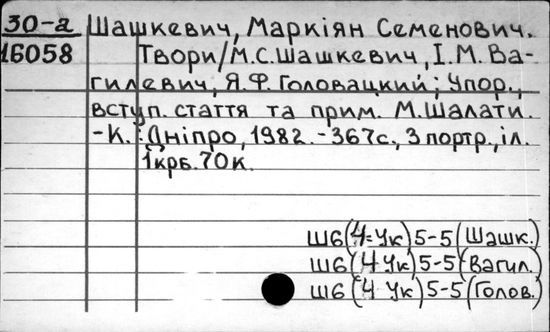 30-а Шашкевич, Маркіян Семенович.
16058 Твори/М.С.Шашкевич, І.М.Ва-
гилевич, Я.Ф.Головацкий; Упор.,
вступ. стаття та прим. М.Шалати.
-К.: Дніпро, 1982. -367с., 3 портр., іл.
1крб.70к.
Ш6(4=Ук)5-5(Шашк.)
Ш6(4 Ук)5-5(Вагил.)
Ш6(4 Ук)5-5(Голов.)